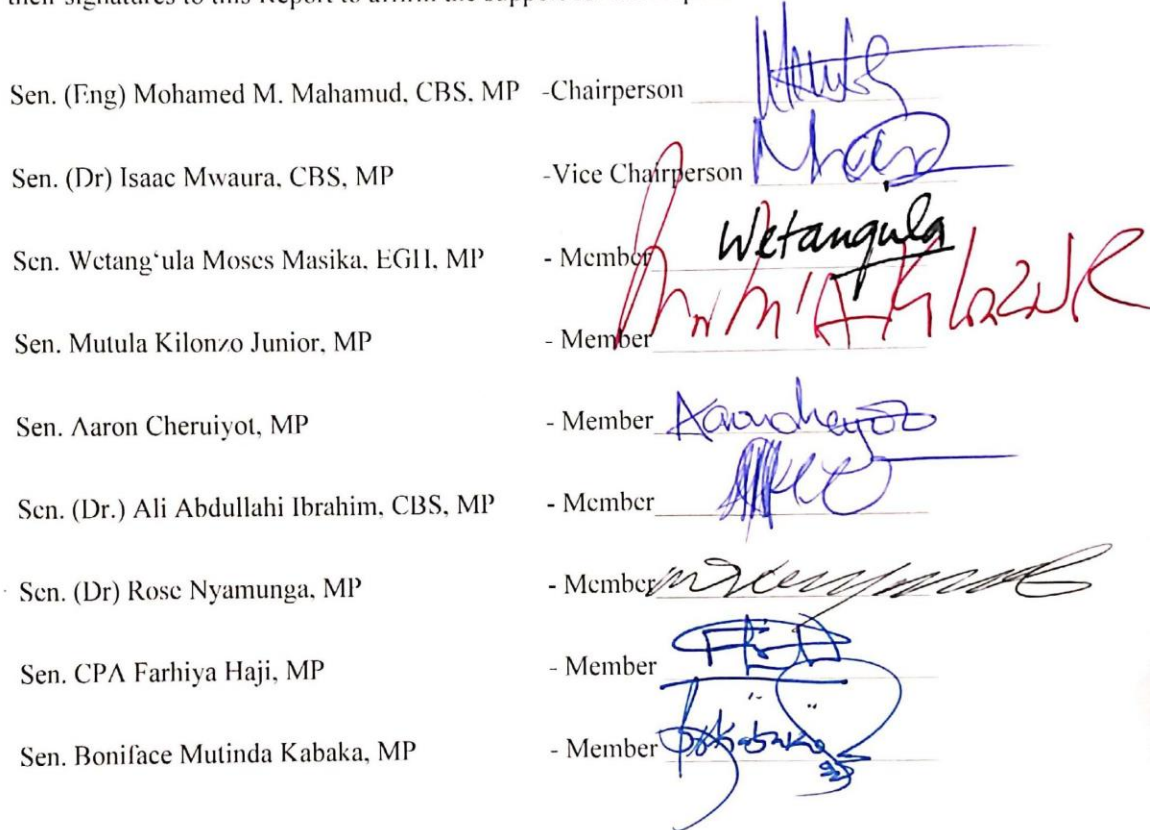 their signatures to this Report to affirm the support
Sen. (Eng) Mohamed M. Mahamud, CBS, MP -Chairperson
Sen. (Dr) Isaac Mwaura, CBS, MP -Vice Chairperson
Sen. Wetang‘ula Moses Masika, EGH, MP - Member Wetangula
Sen. Mutula Kilonzo Junior, MP - Member
Sen. Aaron Cheruiyot, MP - Member
Sen. (Dr.) Ali Abdullahi Ibrahim, CBS, MP - Member
Sen. (Dr) Rose Nyamunga, MP - Member
Sen. CPA Farhiya Haji, MP - Member
Sen. Boniface Mutinda Kabaka, MP - Member